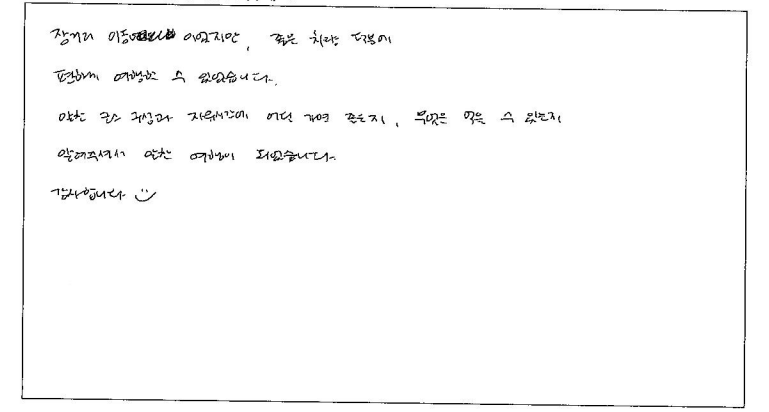 장거리 이동이었지만, 좋은 차량 덕분에
편하게 여행할 수 있었습니다.
알찬 코스 구성과 자유시간에 어딜 가면 좋은지, 무엇을 먹을 수 있는지
알려주셔서 알찬 여행이 되었습니다.
감사합니다